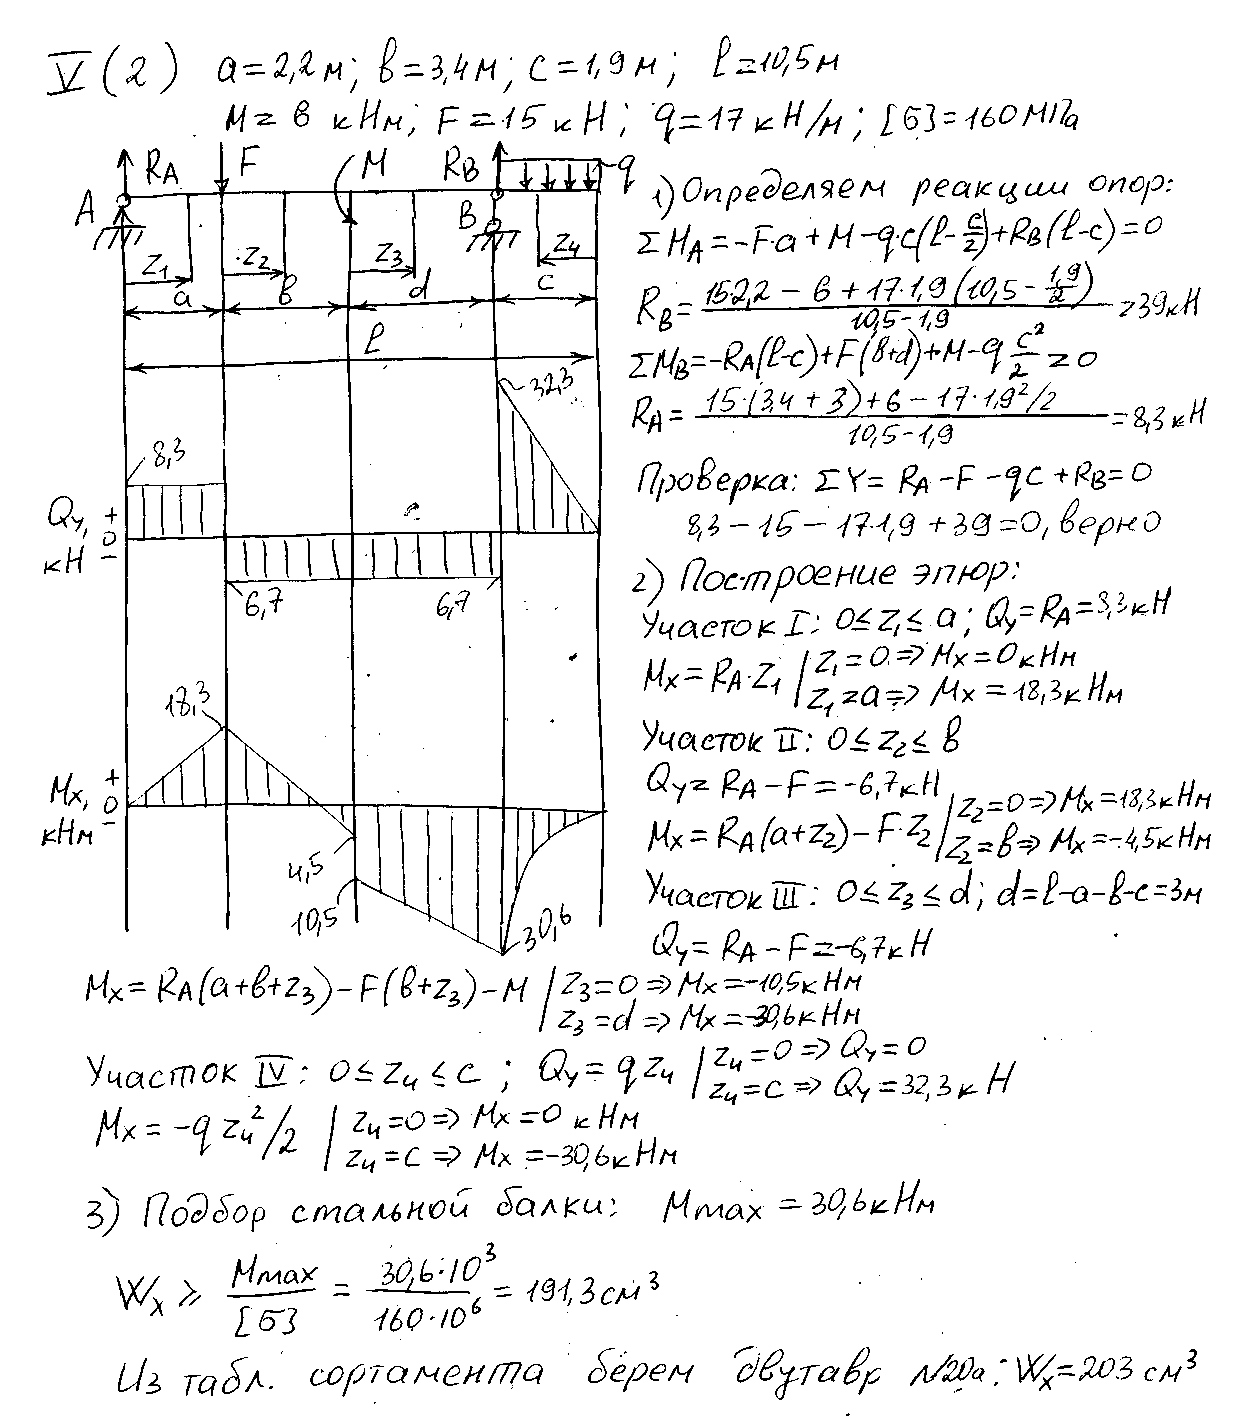 V(2) a=2,2м; b=3,4м; c=1,9м; l=10,5м
M=6 кНм; F=15 кН; q=17 кН/м; [б]=160МПа
RA F M RB q
A B
z1 z2 z3 z4
a b d c
l
1) Определяем реакции опор:
ΣMA=-F·a+M-q·c(l-c/2)+RB(l-c)=0
RB=(15·2,2-6+17·1,9(10,5-1,9/2))/(10,5-1,9)=39кН
ΣMB=-RA(l-c)+F(b+d)+M-q c²/2=0
RA=(15·(3,4+3)+6-17·1,9²/2)/(10,5-1,9)=8,3кН
Проверка: ΣY=RA-F-qc+RB=0
8,3-15-17·1,9+39=0, верно
32,3
8,3
Qy, кН
+
0
-
6,7 6,7
2) Построение эпюр:
Участок I: 0≤z1≤a; Qy=RA=8,3кН
Mx=RA·z1 | z1=0⇒Mx=0кНм
z1=a⇒Mx=18,3кНм
Участок II: 0≤z2≤b
Qy=RA-F=-6,7кН
Mx=RA(a+z2)-F·z2 | z2=0⇒Mx=18,3кНм
z2=b⇒Mx=-4,5кНм
Участок III: 0≤z3≤d; d=l-a-b-c=3м
Qy=RA-F=-6,7кН
18,3
Mx, кНм
+
0
-
4,5
10,5
30,6
Mx=RA(a+b+z3)-F(b+z3)-M | z3=0⇒Mx=-10,5кНм
z3=d⇒Mx=-30,6кНм
Участок IV: 0≤z4≤c; Qy=qz4 | z4=0⇒Qy=0
z4=c⇒Qy=32,3кН
Mx=-qz4²/2 | z4=0⇒Mx=0 кНм
z4=c⇒Mx=-30,6кНм
3) Подбор стальной балки: Mmax=30,6кНм
Wx≥Mmax/[б]=30,6·10³/160·10⁶=191,3см³
Из табл. сортамента берем двутавр №20а: Wx=203 см³